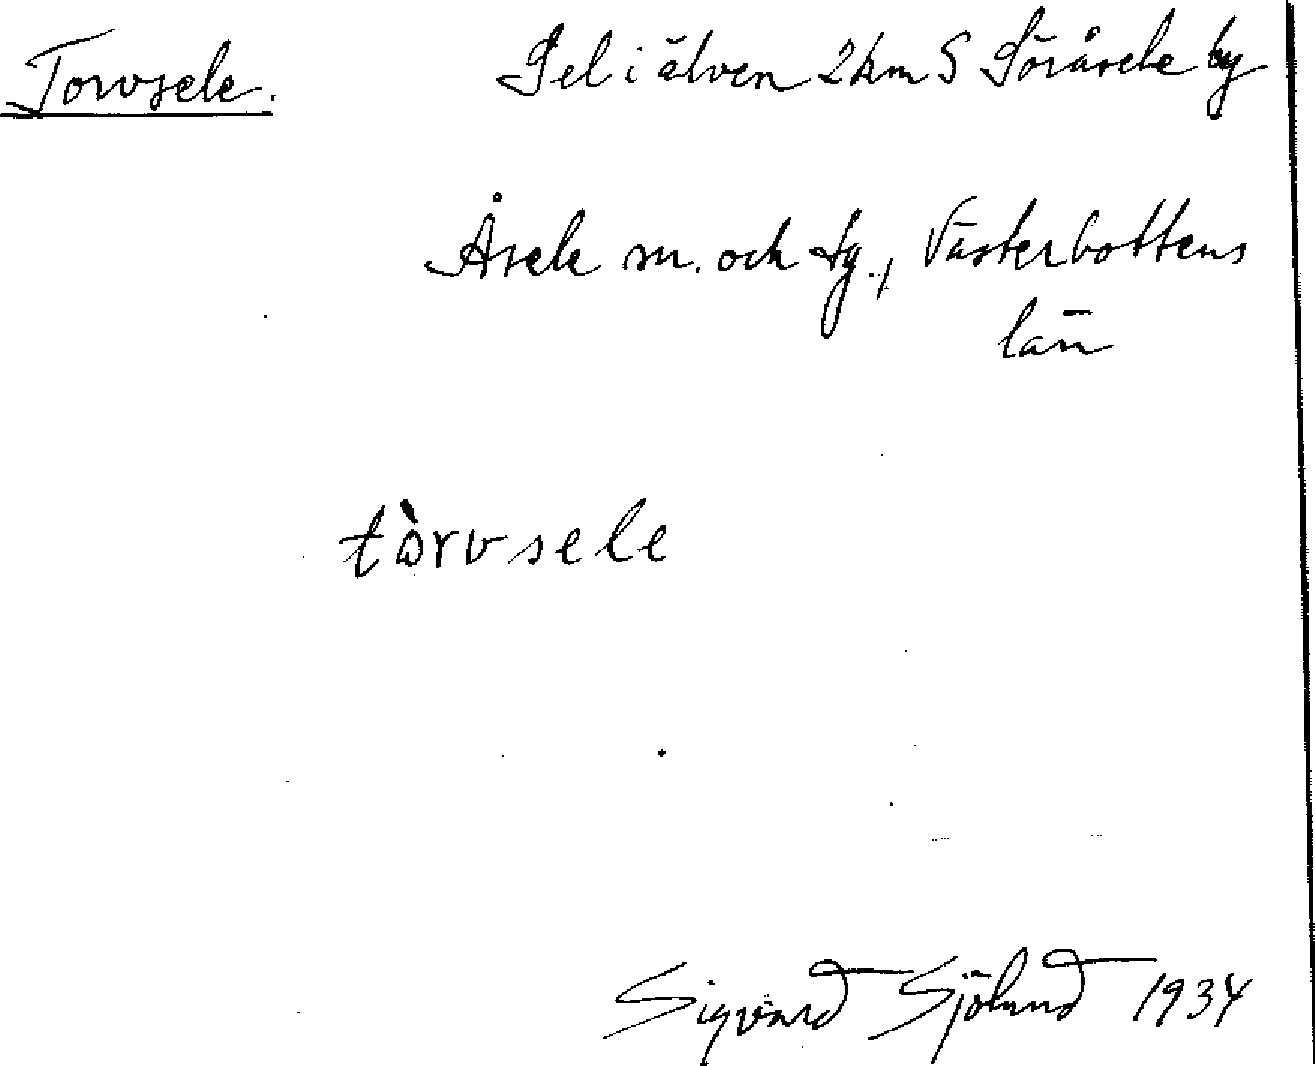 Torvsele. Sel i älven 2 km S Söråsele by
Åsele sn. och tg., Västerbottens
län
tòrvsele
Sigvard Sjölund 1934